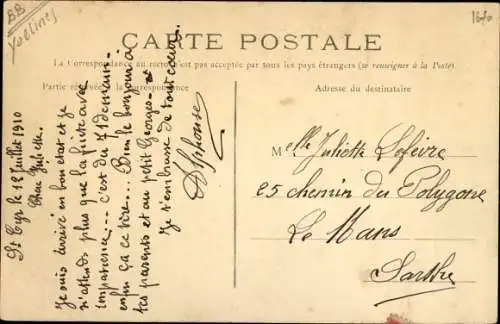 BB
Yvelines
1670
CARTE POSTALE
La Correspondance au recto n'est pas acceptée par tous les pays étrangers (se renseigner à la Poste)
Partie réservée à la correspondance
Adresse du destinataire
St Cyr le 18 Juillet 1910
Chère Juliette
Je suis arrivé en bon état et je
n'attends plus que la fuite avec
impatience... c'est du demain-
enfin ça se tire... Bien le bonjour à
tes parents et au petit Georges-et
Je t'embrasse de tout coeur.
Alphonse
Melle Juliette Lefèvre
25 chemin du Polygone
Le Mans
Sarthe